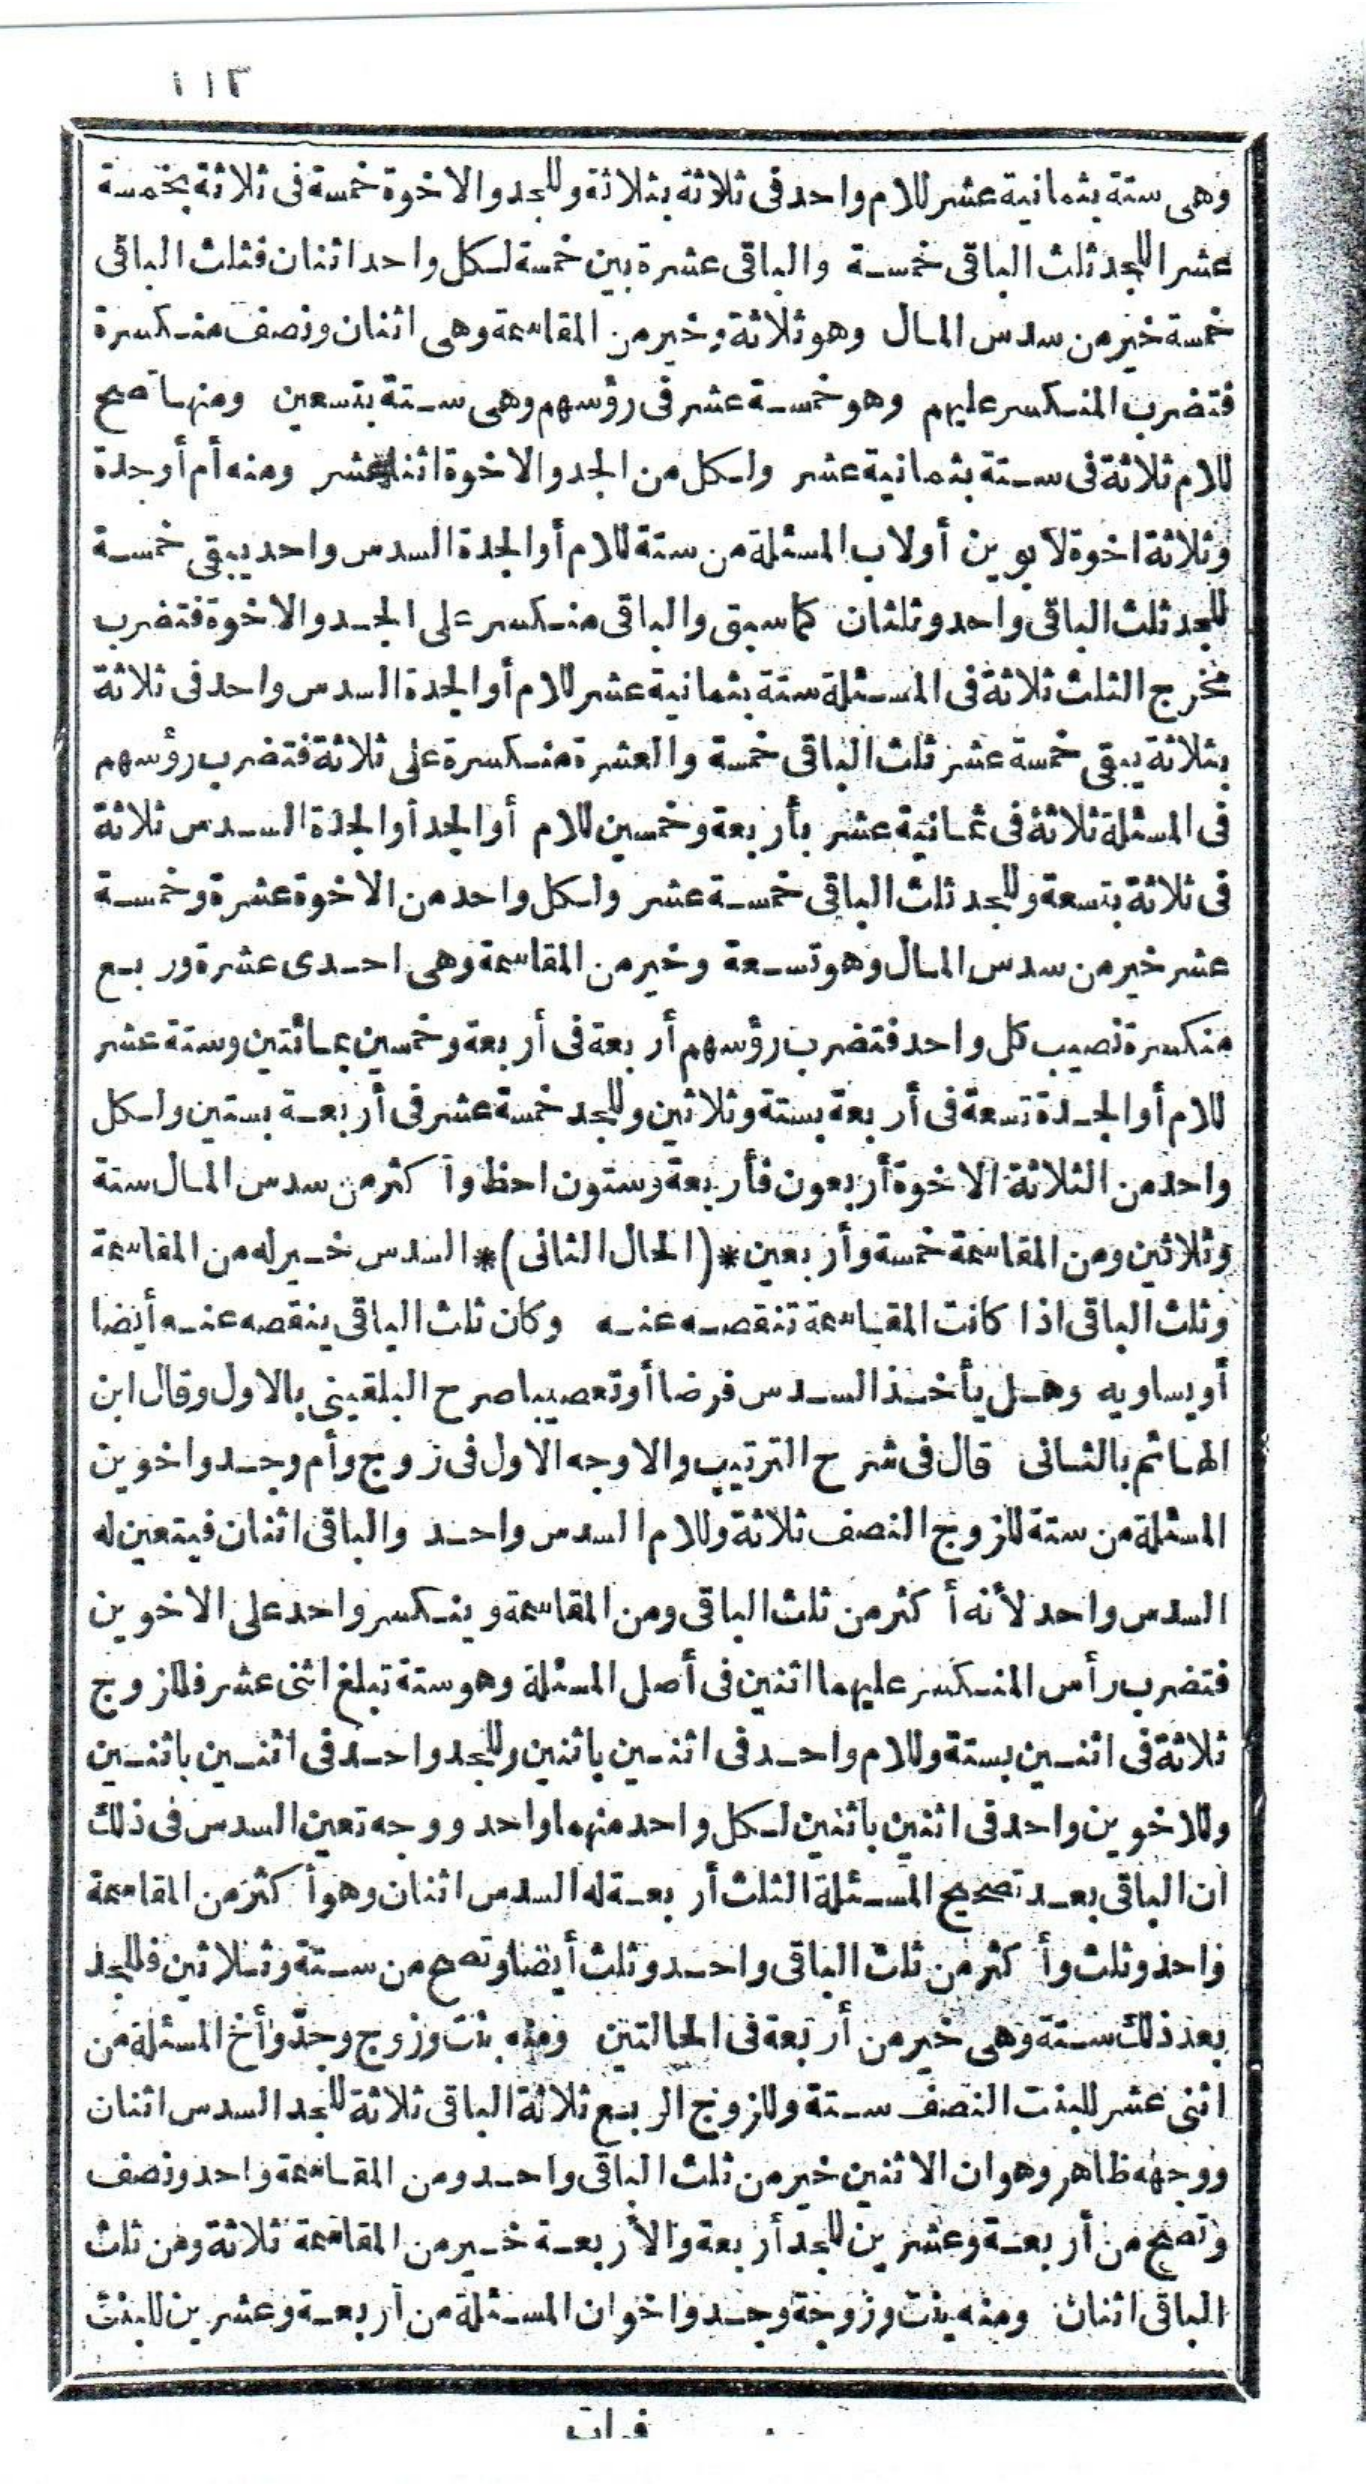 ١١٣
وهى ستة بثمانية عشر للام واحد فى ثلاثة بثلاثة وللجد والاخوة خمسة فى ثلاثة بخمسة
عشر للجد ثلث الباقى خمسة والباقى عشرة بين خمسة لكل واحد اثنان فثلث الباقى
خمسة خير من سدس المال وهو ثلاثة وخير من المقاسمة وهى اثنان ونصف منكسرة
فتضرب المنكسر عليهم وهو خمسة عشر فى رؤسهم وهى ستة بتسعين ومنها تصح
للام ثلاثة فى ستة بثمانية عشر ولكل من الجد والاخوة اثنا عشر ومنه أم أوجدة
وثلاثة اخوة لابوين أولاب المسئلة من ستة للام أوالجدة السدس واحد يبقى خمسة
للجد ثلث الباقى واحد وثلثان كما سبق والباقى منكسر على الجد والاخوة فتضرب
مخرج الثلث ثلاثة فى المسئلة ستة بثمانية عشر للام أوالجدة السدس واحد فى ثلاثة
بثلاثة يبقى خمسة عشر ثلث الباقى خمسة والعشرة منكسرة على ثلاثة فتضرب رؤسهم
فى المسئلة ثلاثة فى ثمانية عشر بأربعة وخمسين للام أوالجد أوالجدة السدس ثلاثة
فى ثلاثة بتسعة وللجد ثلث الباقى خمسة عشر ولكل واحد من الاخوة عشرة وخمسة
عشر خير من سدس المال وهو تسعة وخير من المقاسمة وهى احدى عشرة وربع
منكسرة نصيب كل واحد فتضرب رؤسهم أربعة فى أربعة وخمسين بمائتين وستة عشر
للام أوالجدة تسعة فى أربعة بستة وثلاثين وللجد خمسة عشر فى أربعة بستين ولكل
واحد من الثلاثة الاخوة أربعون فأربعة وستون احظ وأكثر من سدس المال ستة
وثلاثين ومن المقاسمة خمسة وأربعين *(الحال الثانى)* السدس خير له من المقاسمة
وثلث الباقى اذا كانت المقاسمة تنقصه عنه وكان ثلث الباقى ينقصه عنه أيضا
أويساويه وهل يأخذ السدس فرضا أوتعصيبا صرح البلقينى بالاول وقال ابن
الهائم بالثانى قال فى شرح الترتيب والاوجه الاول فى زوج وأم وجد واخوين
المسئلة من ستة للزوج النصف ثلاثة وللام السدس واحد والباقى اثنان فيتعين له
السدس واحد لأنه أكثر من ثلث الباقى ومن المقاسمة وينكسر واحد على الاخوين
فتضرب رأس المنكسر عليهما اثنين فى أصل المسئلة وهو ستة تبلغ اثنى عشر فللزوج
ثلاثة فى اثنين بستة وللام واحد فى اثنين باثنين وللجد واحد فى اثنين باثنين
وللاخوين واحد فى اثنين باثنين لكل واحد منهما واحد ووجه تعين السدس فى ذلك
ان الباقى بعد تصحيح المسئلة الثلث أربعة له السدس اثنان وهو أكثر من المقاسمة
واحد وثلث وأكثر من ثلث الباقى واحد وثلث أيضا وتصح من ستة وثلاثين فللجد
بعد ذلك ستة وهى خير من أربعة فى الحالتين ومنه بنت وزوج وجد وأخ المسئلة من
اثنى عشر للبنت النصف ستة وللزوج الربع ثلاثة الباقى ثلاثة للجد السدس اثنان
ووجهه ظاهر وهو ان الاثنين خير من ثلث الباقى واحد ومن المقاسمة واحد ونصف
وتصح من أربعة وعشرين للجد أربعة والأربعة خير من المقاسمة ثلاثة ومن ثلث
الباقى اثنان ومنه بنت وزوجة وجد واخوان المسئلة من أربعة وعشرين للبنت